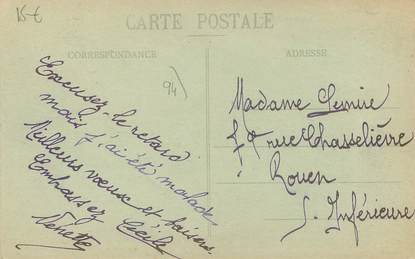 15 €
CARTE POSTALE
CORRESPONDANCE
ADRESSE
94)
Excusez-le retard
mais j'ai été malade,
Meilleurs vœux et baisers
Cécile
Embrassez
Madame
rue Chasselièvre
Rouen
S. Inférieure